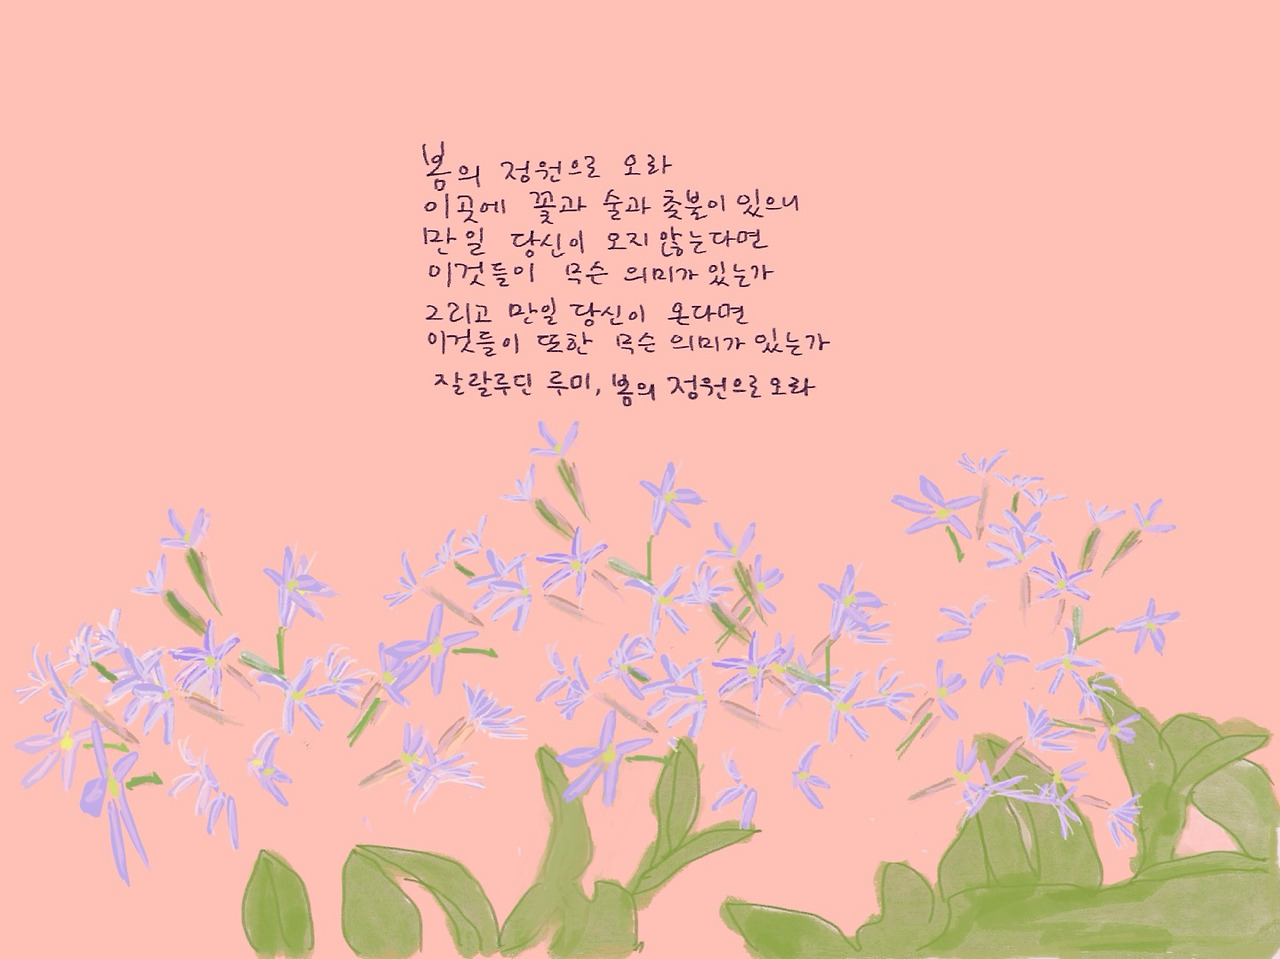 봄의 정원으로 오라
이곳에 꽃과 술과 촛불이 있으니
만일 당신이 오지 않는다면
이것들이 무슨 의미가 있는가
그리고 만일 당신이 온다면
이것들이 또한 무슨 의미가 있는가
잘랄루딘 루미, 봄의 정원으로 오라